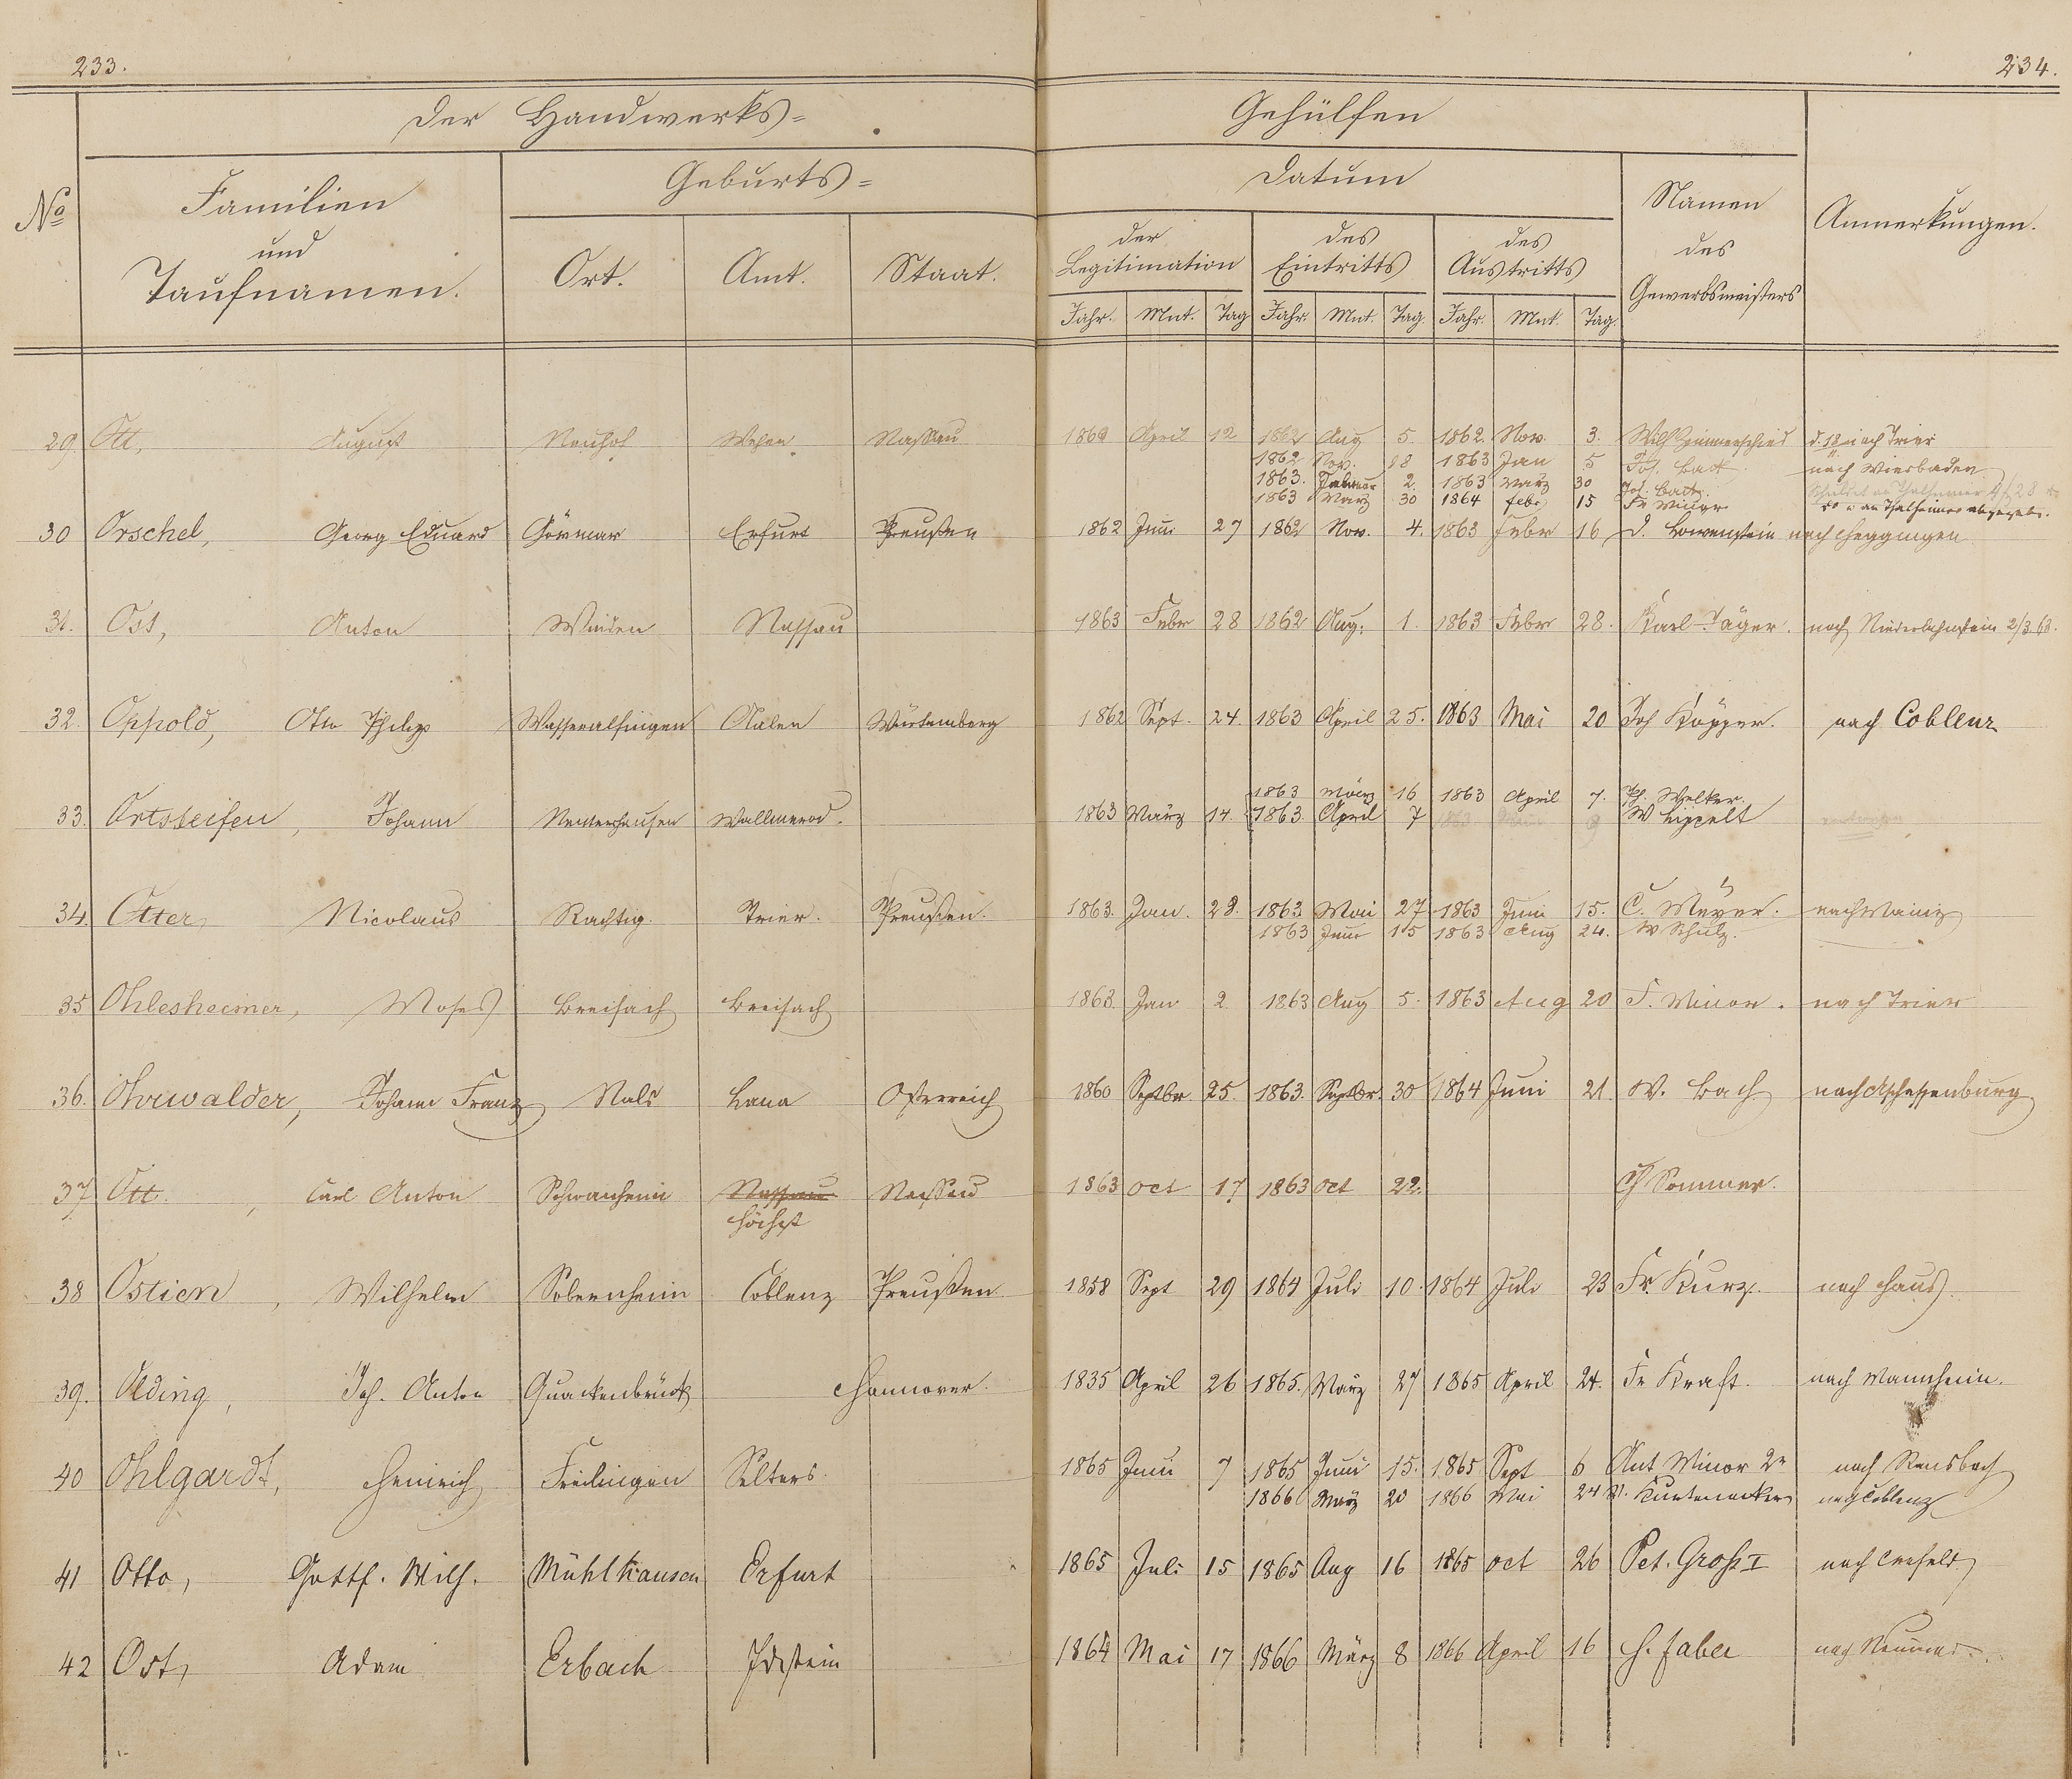 233.
234.
Der Handwerks=
Gehülfen
No
Familien
und
Taufnamen.
Geburts=
Ort.
Amt.
Staat.
Datum
der
Legitimation
des
Eintritts
des
Austritts
Jahr. Mnt. Tag Jahr. Mnt. Tag. Jahr. Mnt. Tag.
Namen
des
Gewerbsmeisters
Anmerkungen.
29 Ott, August Neuhof Wehen Nassau 1862 April 12 1862 Aug 5. 1862. Nov. 3. Wilh Zimmerschied d. 18 nach Trier
1862 Nov. 18 1863 Jan 5 nach Wiesbaden
1863. Februar 2. 1863 März 30
1863 März 30 1864 febr 15 Fr
30 Orschel, Georg Eduard Görmar Erfurt Preußen 1862 Juni 27 1862 Nov. 4. 1863 Febr 16 D. Löwenstein nach
31. Ost, Anton Winden Nassau 1863 Febr 28 1862 Aug. 1. 1863 Febr 28. Karl Jäger. nach Niederlahnstein 2/3 63.
32. Oppold, Otto Philipp Wasseralfingen Aalen Würtemberg 1862 Sept. 24. 1863 April 25. 1863 Mai 20 Joh Köpper. nach Coblenz
1863 März 16 1863 April 7. Ph. Welker.
33. Ortseifen, Johann Wallmerod. 1863 März 14. 1863. April 7 W Lippelt
34. Otter, Nicolaus Rachtig. Trier. Preußen. 1863. Jan. 28. 1863 Mai 27 1863 Juni 15. C. Meyer. nach Mainz
1863 Juni 15 1863 Aug 24. W Schulz.
35 Ohlesheimer, Moses Breisach Breisach 1863. Jan 2. 1863 Aug 5. 1863 Aug 20 F. Minor. nach Trier
36. Ohrwalder, Johann Franz Nals Lana Östrreich 1860 Septbr 25. 1863. Septbr. 30 1864 Juni 21. W. Bach nach Aschaffenburg
37 Ott., Carl Anton Schwanheim Nassau Nassau 1863 oct 17 1863 oct 22. Sommer.
Höchst
38 Ostien, Wilhelm Sobernheim Coblenz Preußen 1858 Sept 29 1864 Juli 10. 1864 Juli 23 Fr. Kurz. nach Haus.
39. Olding, Joh. Anton Quackenbrück Hannover. 1835 April 26 1865. März 27 1865 April 24. Fr Kraft. nach Mannheim.
40 Ohlgardt, Heinrich Freilingen Selters 1865 Juni 7 1865 Juni 15. 1865 Sept 6 Ant Minor 2r nach Ransbach
1866 März 20 1866 Mai 24 nach Coblenz
41 Otto, Gottf. Wilh. Mühlhausen Erfurt 1865 Juli 15 1865 Aug 16 1865 oct 26 Pet. Groß I nach Crefeld.
42 Ost, Adam Erbach Idstein 1864 Mai 17 1866 März 8 1866 April 16 H. Faber nach